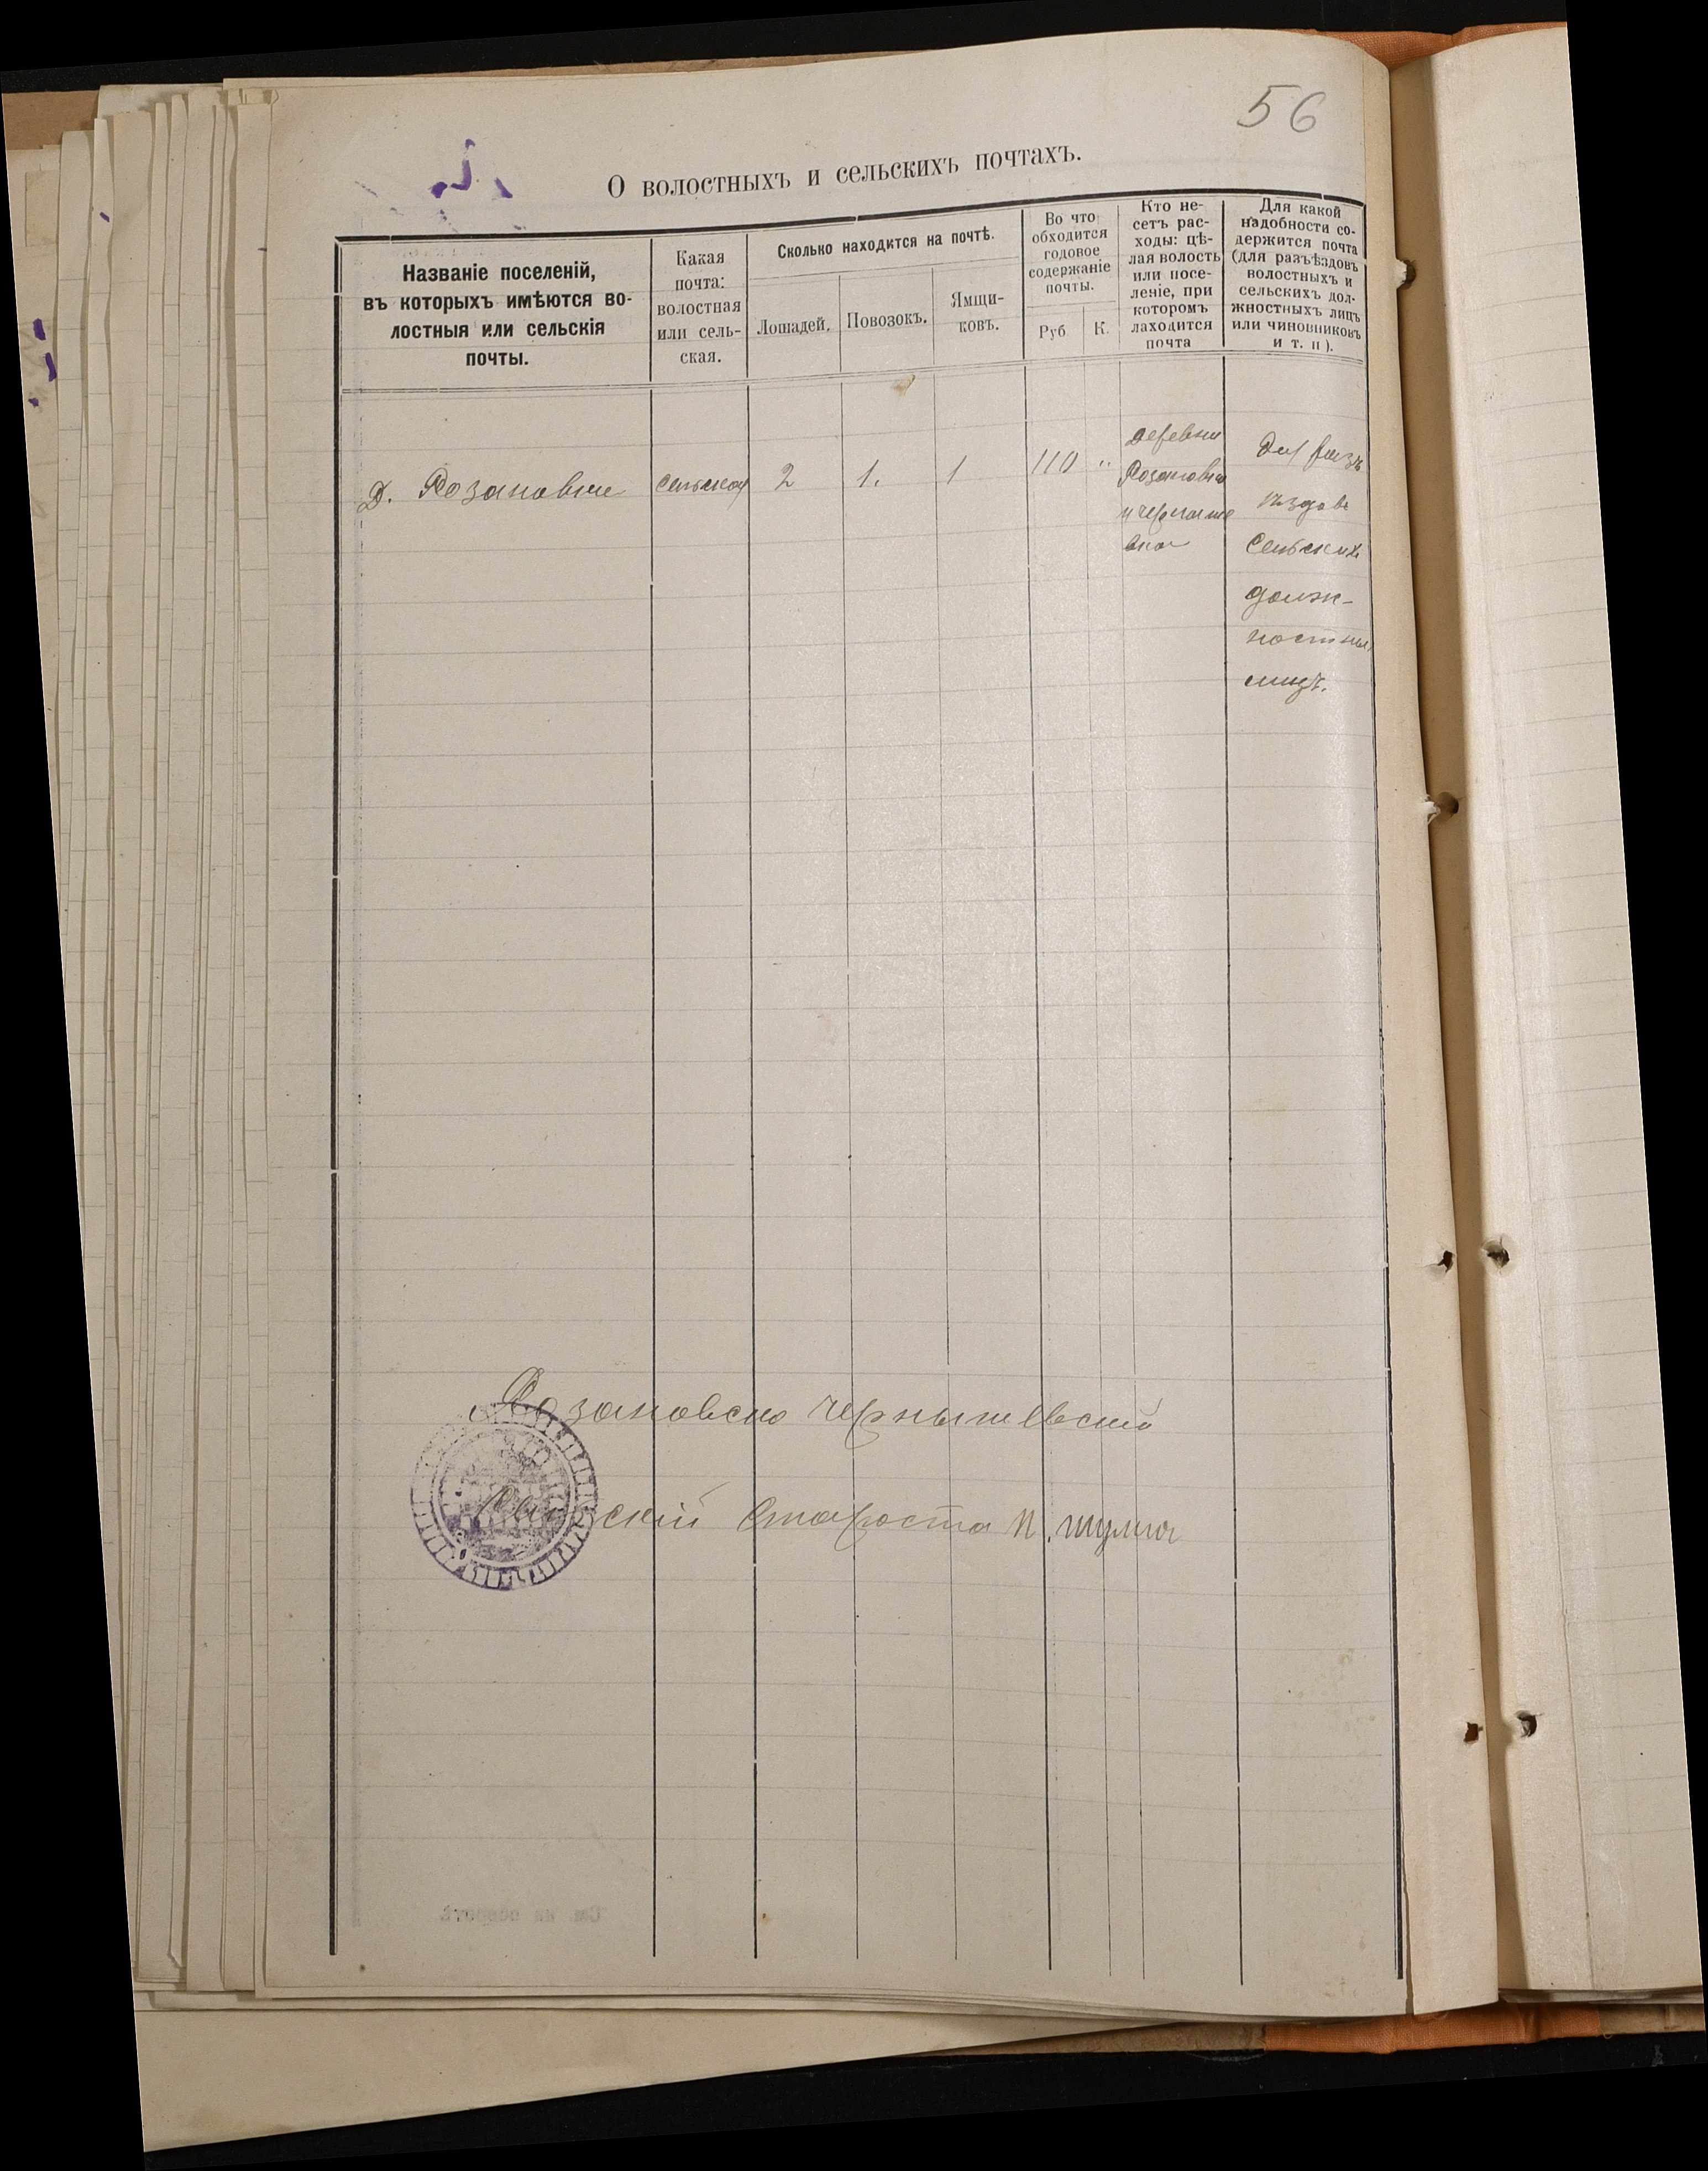 56
О волостныхъ и сельскихъ почтахъ.
Названіе поселеній,
въ которыхъ имѣются во-
лостныя или сельскія
почты.
Какая
почта:
волостная
или сель-
ская.
Сколько находится на почтѣ.
Лошадей.
Повозокъ.
Ямщи-
ковъ.
Во что
обходится
годовое
содержаніе
почты.
Руб
К.
Кто не-
сетъ рас-
ходы: цѣ-
лая волость
или посе-
леніе, при
которомъ
находится
почта
Для какой
надобности со-
держится почта
(для разъѣздовъ
волостныхъ и
сельскихъ дол-
жностныхъ лицъ
или чиновниковъ
и т. п ).
Д. Розановке
сельская
2
1.
1
110
"
деревни
Розановка
и черныше
вка
Для разъ
ѣздовъ
сельскихъ
долж-
ностных
лицъ.
Розановско чернышевский
Сельский Староста П. шулга
См. на оборотѣ